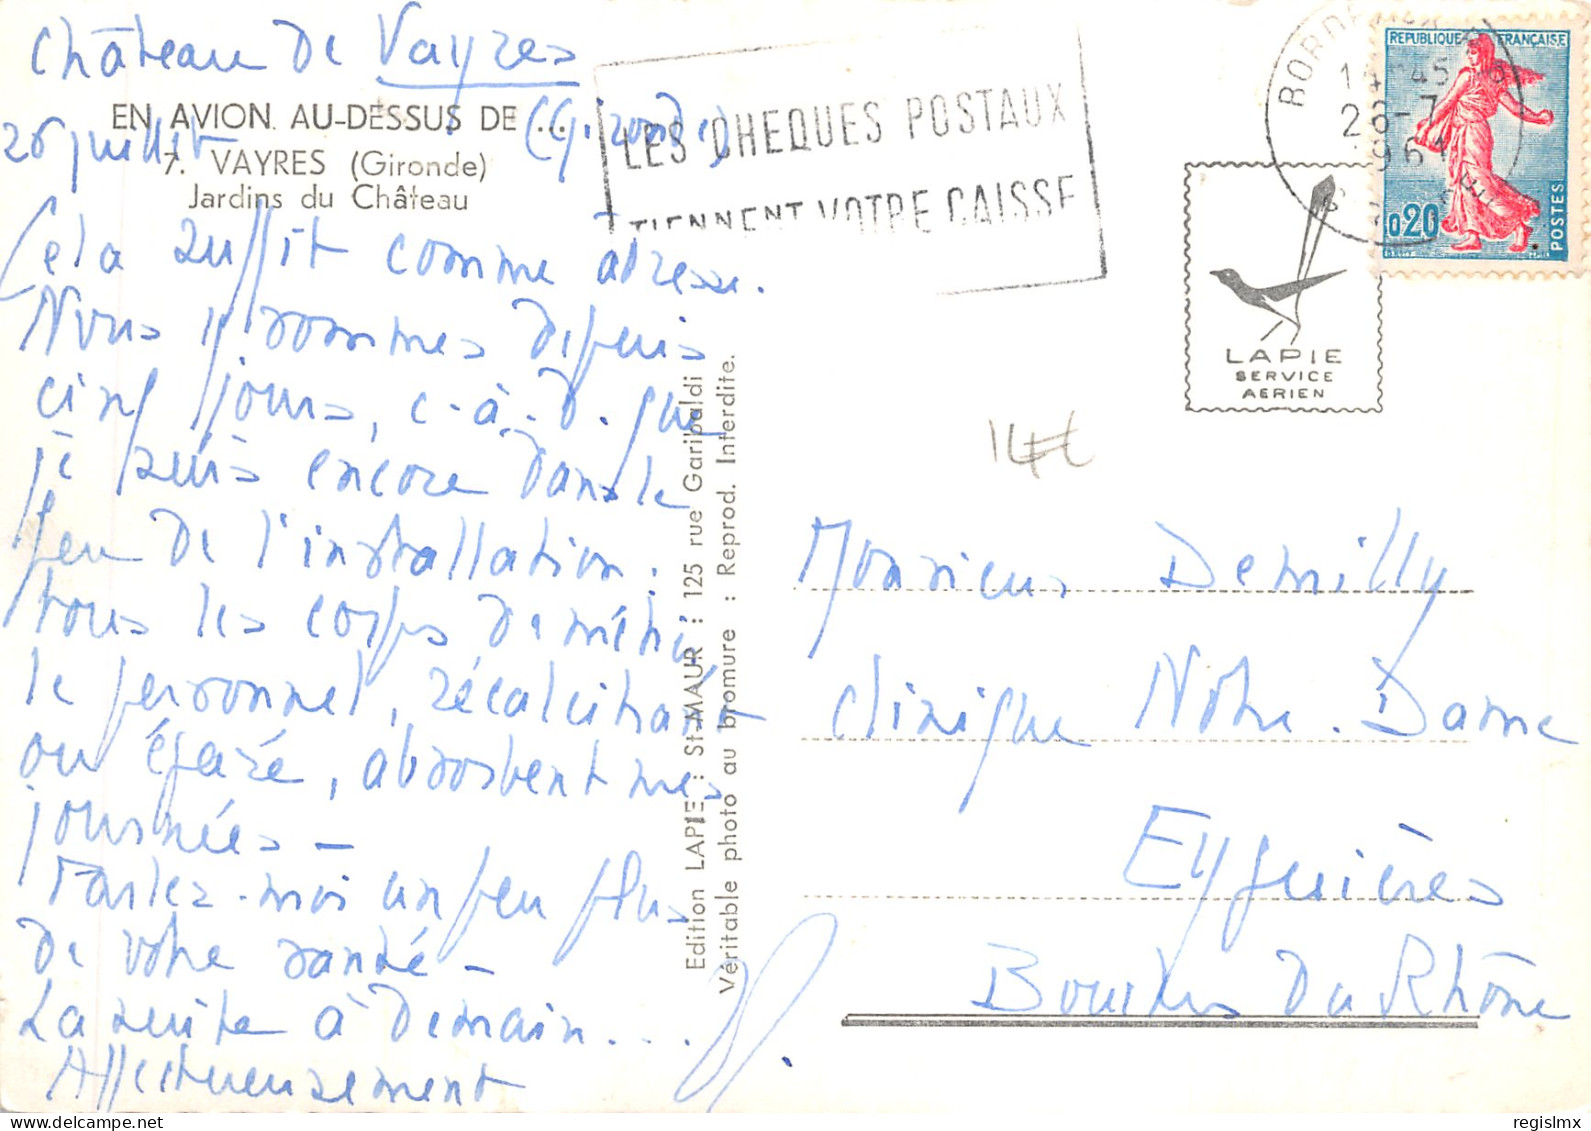 Château de Vayres
EN AVION AU-DESSUS DE ...
26 juillet
(Gironde)
7. VAYRES (Gironde)
Jardins du Château
Cela suffit comme adresse.
Nous y sommes depuis
cinq jours, c-à-d. que
je suis encore dans le
feu de l'installation.
tous les corps de métier
le personnel, récalcitrant
ou égaré, absorbent mes
journées –
Parlez-moi un peu plus
de votre santé –
La suite à demain...
Affectueusement
Edition LAPIE : St-MAUR : 125 rue Garibaldi
Véritable photo au bromure : Reprod. Interdite.
LES CHEQUES POSTAUX
TIENNENT VOTRE CAISSE
BORDEAUX
14 45
26-7
1961
REPUBLIQUE FRANÇAISE
0,20
POSTES
LAPIE
SERVICE
AERIEN
Monsieur Demilly
Clinique Notre-Dame
Eyguières
Bouches du Rhône
regislmx